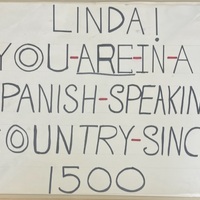 LINDA!
YOU-ARE-IN-A
PANISH-SPEAKIN
OUNTRY-SINC
1500